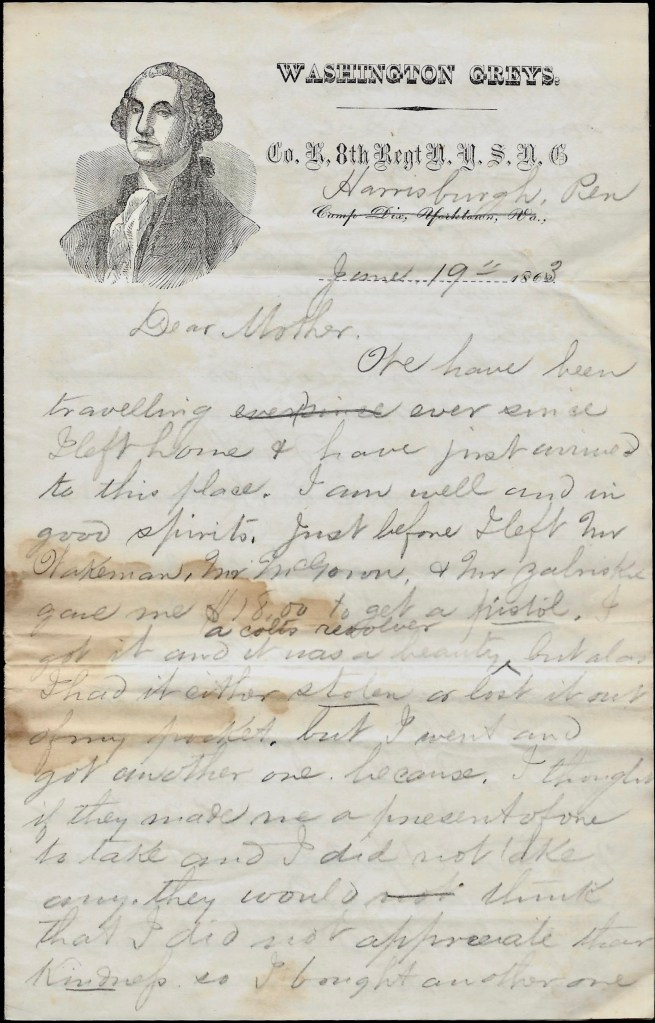 WASHINGTON GREYS.
Co. K, 8th Regt N. Y. S. N. G
Harrisburgh, Pen
Camp Dix, Yorktown, Va.,
June 19" 1863
Dear Mother.
We have been
travelling ever since ever since
I left home & have just arrived
to this place. I am well and in
good spirits. Just before I left Mr
Wakeman, Mr McGown, & Mr Zabriskie
gave me $18.00 to get a pistol. I
a colts revolver
got it and it was a beauty, but alas
I had it either stolen or lost it out
of my pocket. but I went and
got another one. because. I thought
if they made me a present of one
to take and I did not take
any. they would not think
that I did not appreciate their
Kindness. so I bought another one